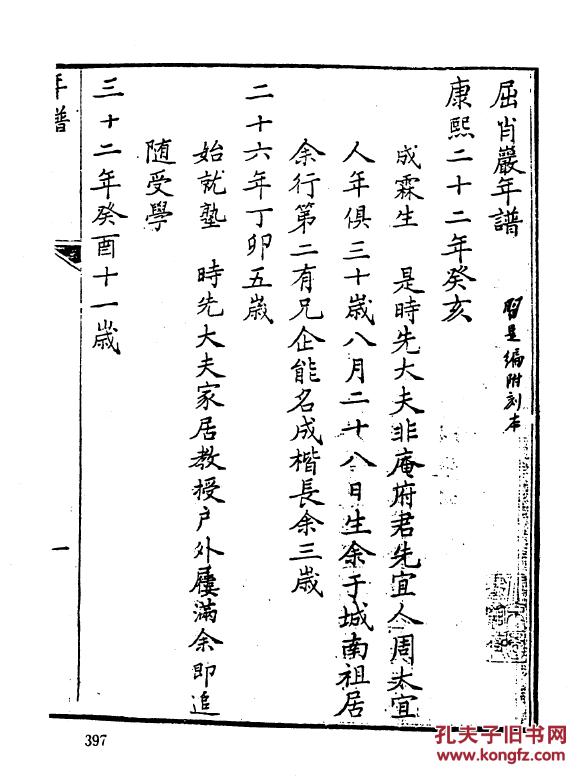 屈肖巖年譜 習是編附刻本
康熙二十二年癸亥
成霖生 是時先大夫非庵府君先宜人周太宜
人年俱三十歲八月二十八日生余于城南祖居
余行第二有兄企能名成楷長余三歲
二十六年丁卯五歲
始就塾 時先大夫家居教授户外屨滿余即追
随受學
三十二年癸酉十一歲
年譜
一
397
孔夫子旧书网
www.kongfz.com